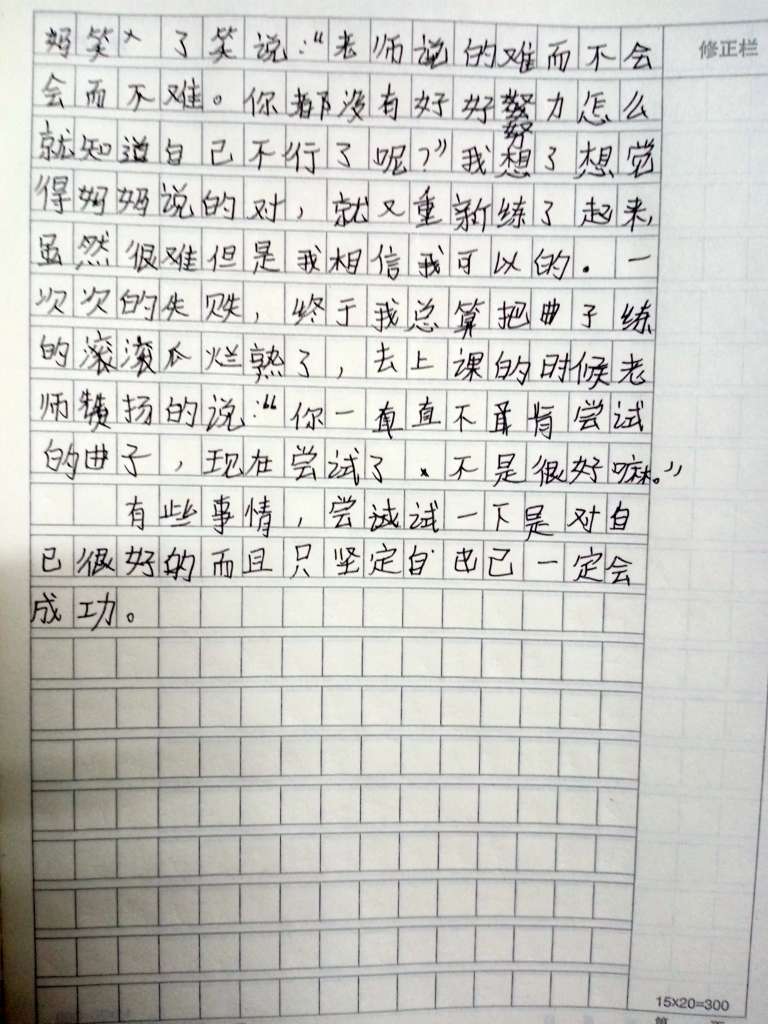 妈笑了笑说：“老师说的难而不会 修正栏
会而不难。你都没有好好努力怎么
就知道自己不行了呢？”我想了想觉
得妈妈说的对，就又重新练了起来，
虽然很难但是我相信我可以的。一
次次的失败，终于我总算把曲子练
的滚瓜烂熟了，去上课的时候老
师赞扬的说：“你一直不肯尝试
的曲子，现在尝试了不是很好嘛。”
有些事情，尝试一下是对自
己很好的而且只坚定自己一定会
成功。
15×20=300